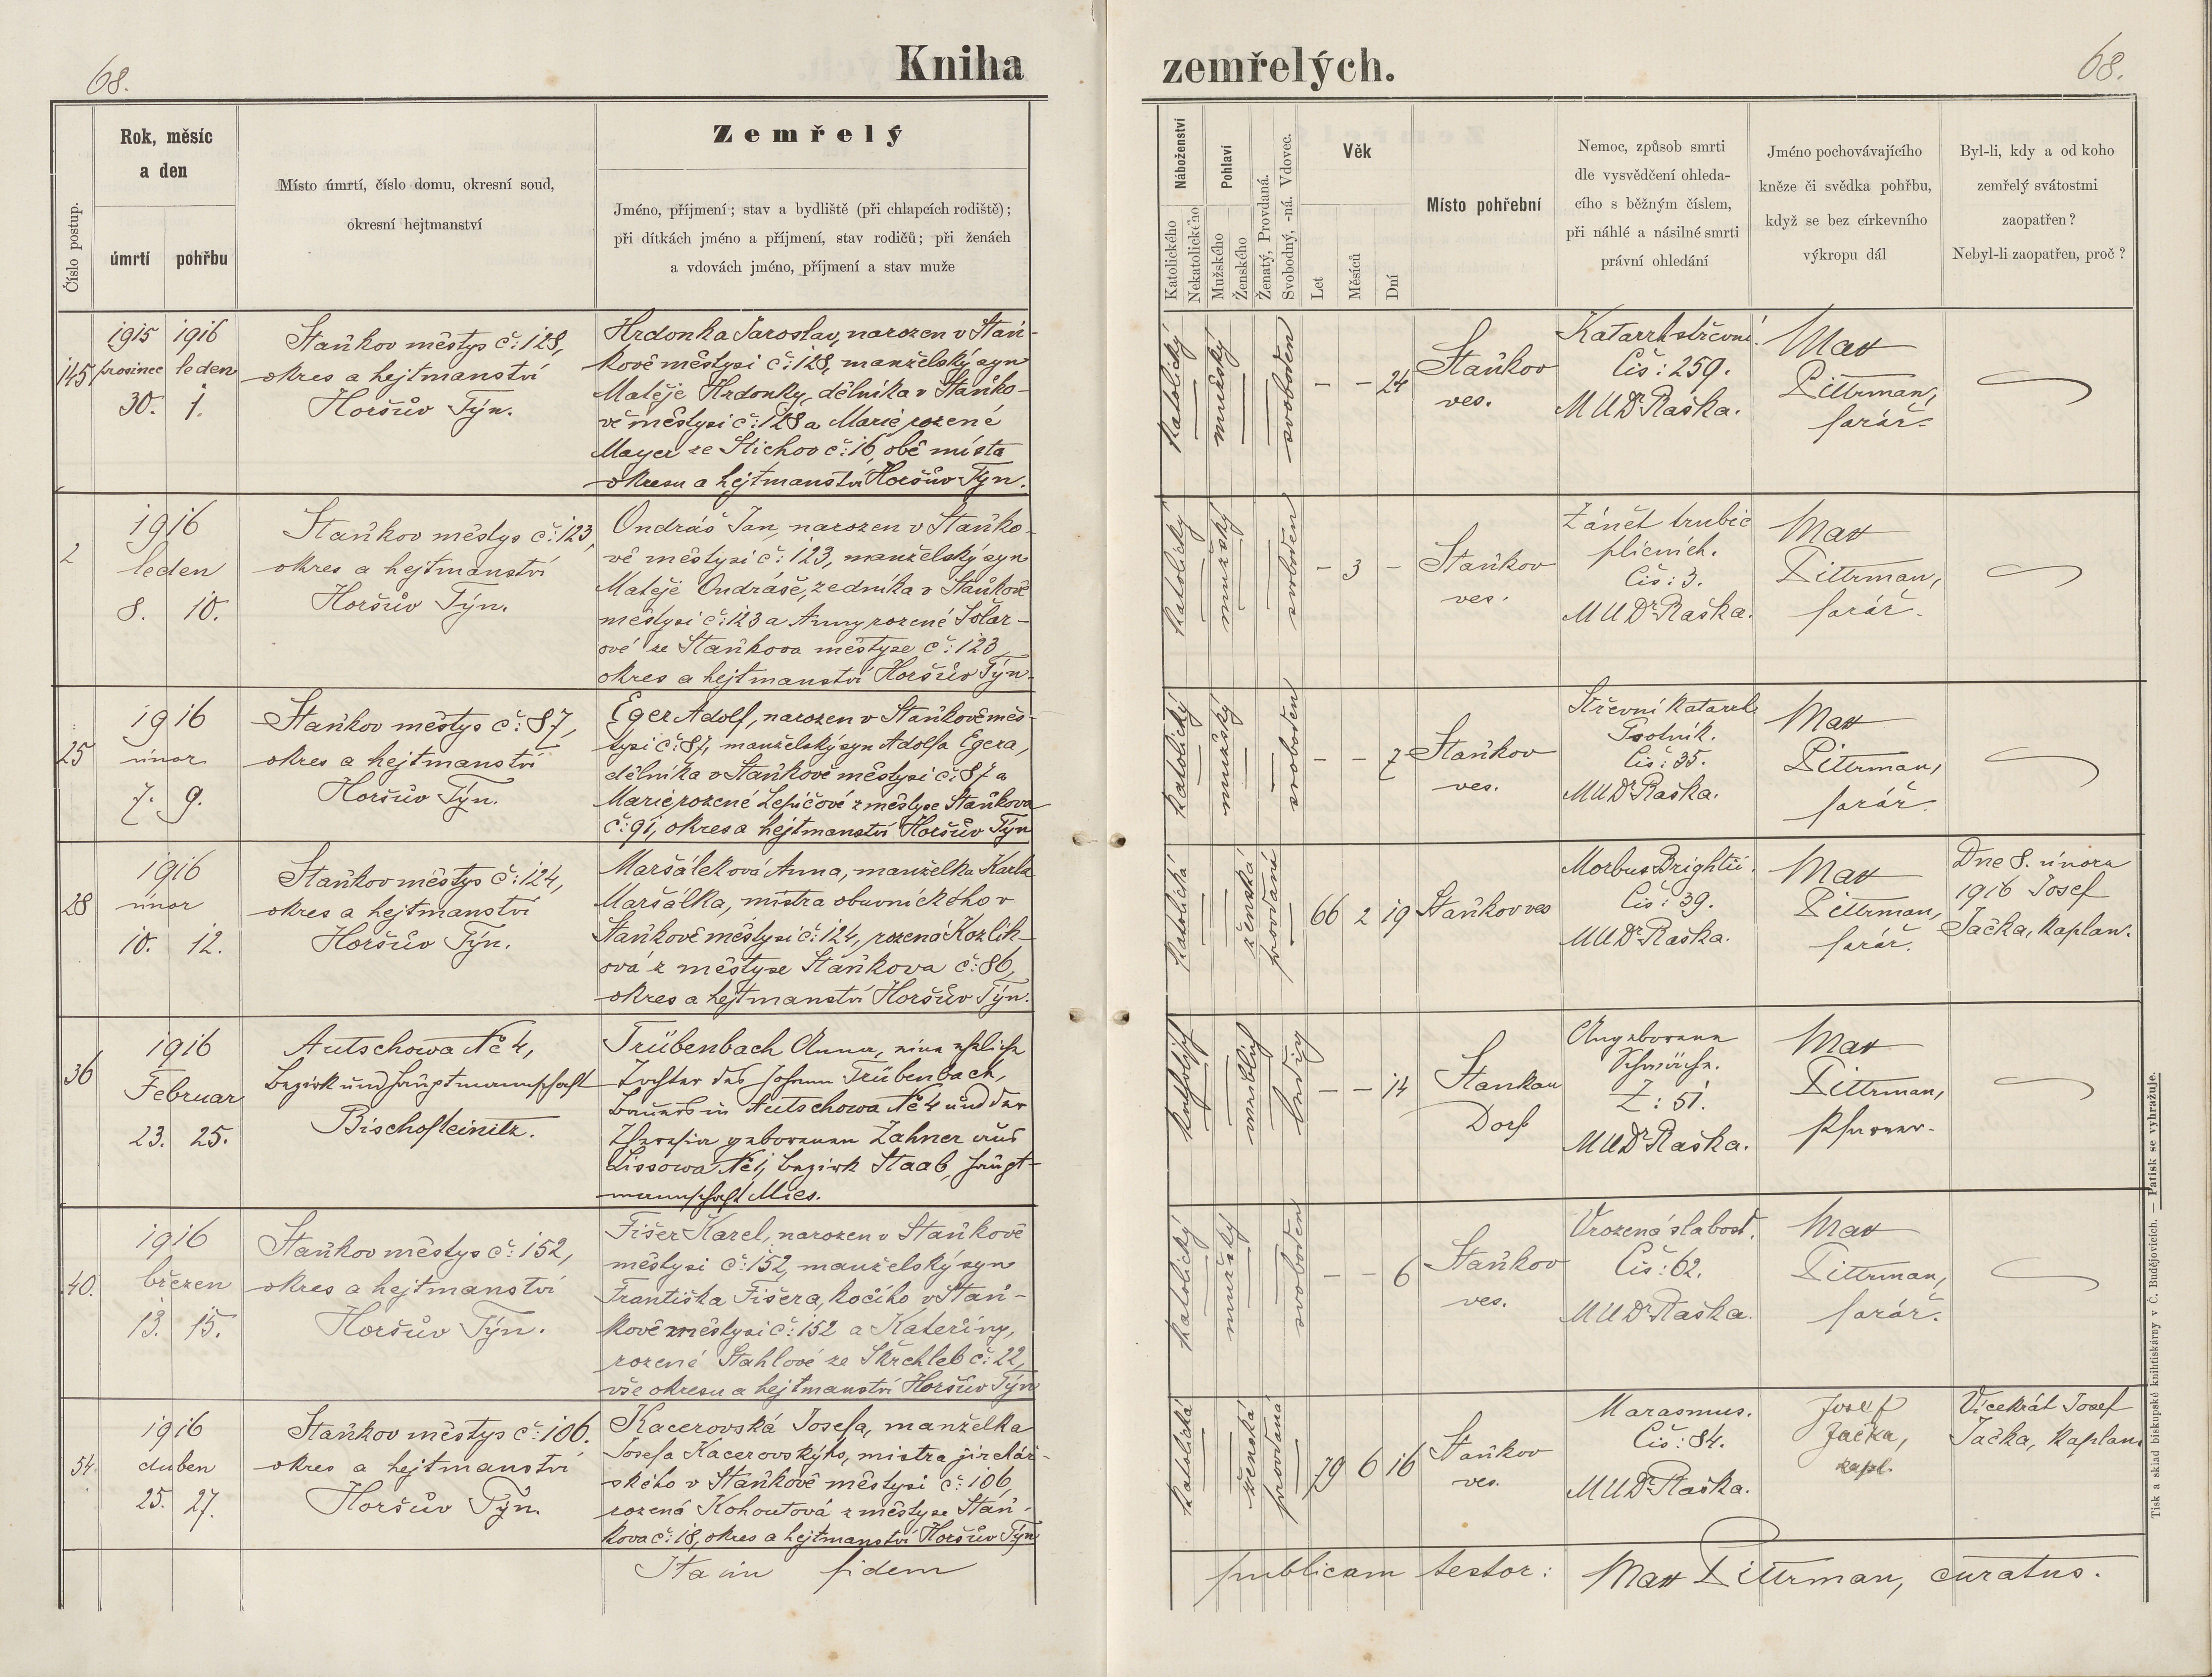 68.
Kniha zemřelých.
68.
Číslo postup.
Rok, měsíc
a den
úmrtí
pohřbu
Místo úmrtí, číslo domu, okresní soud,
okresní hejtmanství
Zemřelý
Jméno, příjmení; stav a bydliště (při chlapcích rodiště);
při dítkách jméno a příjmení, stav rodičů; při ženách
a vdovách jméno, příjmení a stav muže
Náboženství
Katolického
Nekatolického
Pohlaví
Mužského
Ženského
Ženatý, Provdaná.
Svobodný, -ná. Vdovec.
Věk
Let
Měsíců
Dní
Místo pohřební
Nemoc, způsob smrti
dle vysvědčení ohleda-
cího s běžným číslem,
při náhlé a násilné smrti
právní ohledání
Jméno pochovávajícího
kněze či svědka pohřbu,
když se bez církevního
výkropu dál
Byl-li, kdy a od koho
zemřelý svátostmi
zaopatřen?
Nebyl-li zaopatřen, proč?
145
1915 1916
prosinec leden
30. 1.
Staňkov městys č: 128,
okres a hejtmanství
Horšův Týn.
Hrdonka Jaroslav, narozen v Staň-
kově městysi č: 128, manželský syn
Matěje Hrdonky, dělníka v Staňko-
vě městysi č: 128 a Marie rozené
Mayer ze Stichov č: 16, obě místa
okresu a hejtmanství Horšův Týn.
katolický
mužský
svoboden
– – 24
Staňkov
ves.
Katarrh střevní.
Čís: 259.
MUDr Raška.
Max
Pittrman,
farář.
2
1916
leden
8. 10.
Staňkov městys č: 123,
okres a hejtmanství
Horšův Týn.
Ondráš Jan, narozen v Staňko-
vě městysi č: 123, manželský syn
Matěje Ondráše, zedníka v Staňkově
městysi č: 123 a Anny rozené Tolar-
ové ze Staňkova městyse č: 123,
okres a hejtmanství Horšův Týn.
katolický
mužský
svoboden
– 3 –
Staňkov
ves.
Zánět trubic
plicních.
Čís: 3.
MUDr Raška.
Max
Pittrman,
farář.
25
1916
únor
7. 9.
Staňkov městys č: 87,
okres a hejtmanství
Horšův Týn.
Eger Adolf, narozen v Staňkově měs-
tysi č: 87, manželský syn Adolfa Egera,
dělníka v Staňkově městysi č: 87 a
Marie rozené Lepičové z městyse Staňkova
č: 91, okres a hejtmanství Horšův Týn
katolický
mužský
svoboden
– – 7
Staňkov
ves.
Střevní katarrh
Psotník.
Čís: 35.
MUDr Raška.
Max
Pittrman,
farář.
28
1916
únor
10. 12.
Staňkov městys č: 124,
okres a hejtmanství
Horšův Týn.
Maršáleková Anna, manželka Karla
Maršálka, mistra obuvnického v
Staňkově městysi č: 124, rozená Kozlík-
ová z městyse Staňkova č: 86,
okres a hejtmanství Horšův Týn.
katolická
ženská
provdaní
66 2 19
Staňkov ves
Morbus Brightii.
Čís: 39.
MUDr Raška.
Max
Pittrman,
farář.
Dne 8. února
1916 Josef
Jačka, kaplan.
36
1916
Februar
23. 25.
Autschowa No 4,
Bezirk und Hauptmannschaft
Bischofteinitz.
Trübenbach Anna, eine eheliche
Tochter des Johann Trübenbach,
Bauers in Autschowa No 4 und der
Theresia geborenen Zahner aus
Lissowa No 1, Bezirk Staab, Haupt-
mannschaft Mies.
katholisch
weiblich
ledig
– – 14
Stankau
Dorf
Angeborene
Schwäche.
Z: 51.
MUDr Raška.
Max
Pittrman,
Pfarrer.
40.
1916
březen
13. 15.
Staňkov městys č: 152,
okres a hejtmanství
Horšův Týn.
Fišer Karel, narozen v Staňkově
městysi č: 152, manželský syn
Františka Fišera, kočího v Staň-
kově městysi č: 152 a Kateřiny,
rozené Stahlové ze Skřchleb č: 22,
vše okresu a hejtmanství Horšův Týn
katolický
mužský
svoboden
– – 6
Staňkov
ves.
Vrozená slabost.
Čís: 62.
MUDr Raška.
Max
Pittrman,
farář.
54.
1916
duben
25. 27.
Staňkov městys č: 106.
okres a hejtmanství
Horšův Týn.
Kacerovská Josefa, manželka
Josefa Kacerovskýho, mistra jirchář-
ského v Staňkově městysi č: 106,
rozená Kohoutová z městyse Staň-
kova č: 18, okres a hejtmanství Horšův Týn
katolická
ženská
provdaná
79 6 16
Staňkov
ves.
Marasmus.
Čís: 84.
MUDr Raška.
Josef
Jačka,
kapl.
Vícekrát Josef
Jačka, kaplan.
Ita in fidem publicam testor: Max Pittrman, curatus.
Tisk a sklad biskupské knihtiskárny v Č. Budějovicích. — Patisk se vyhražuje.